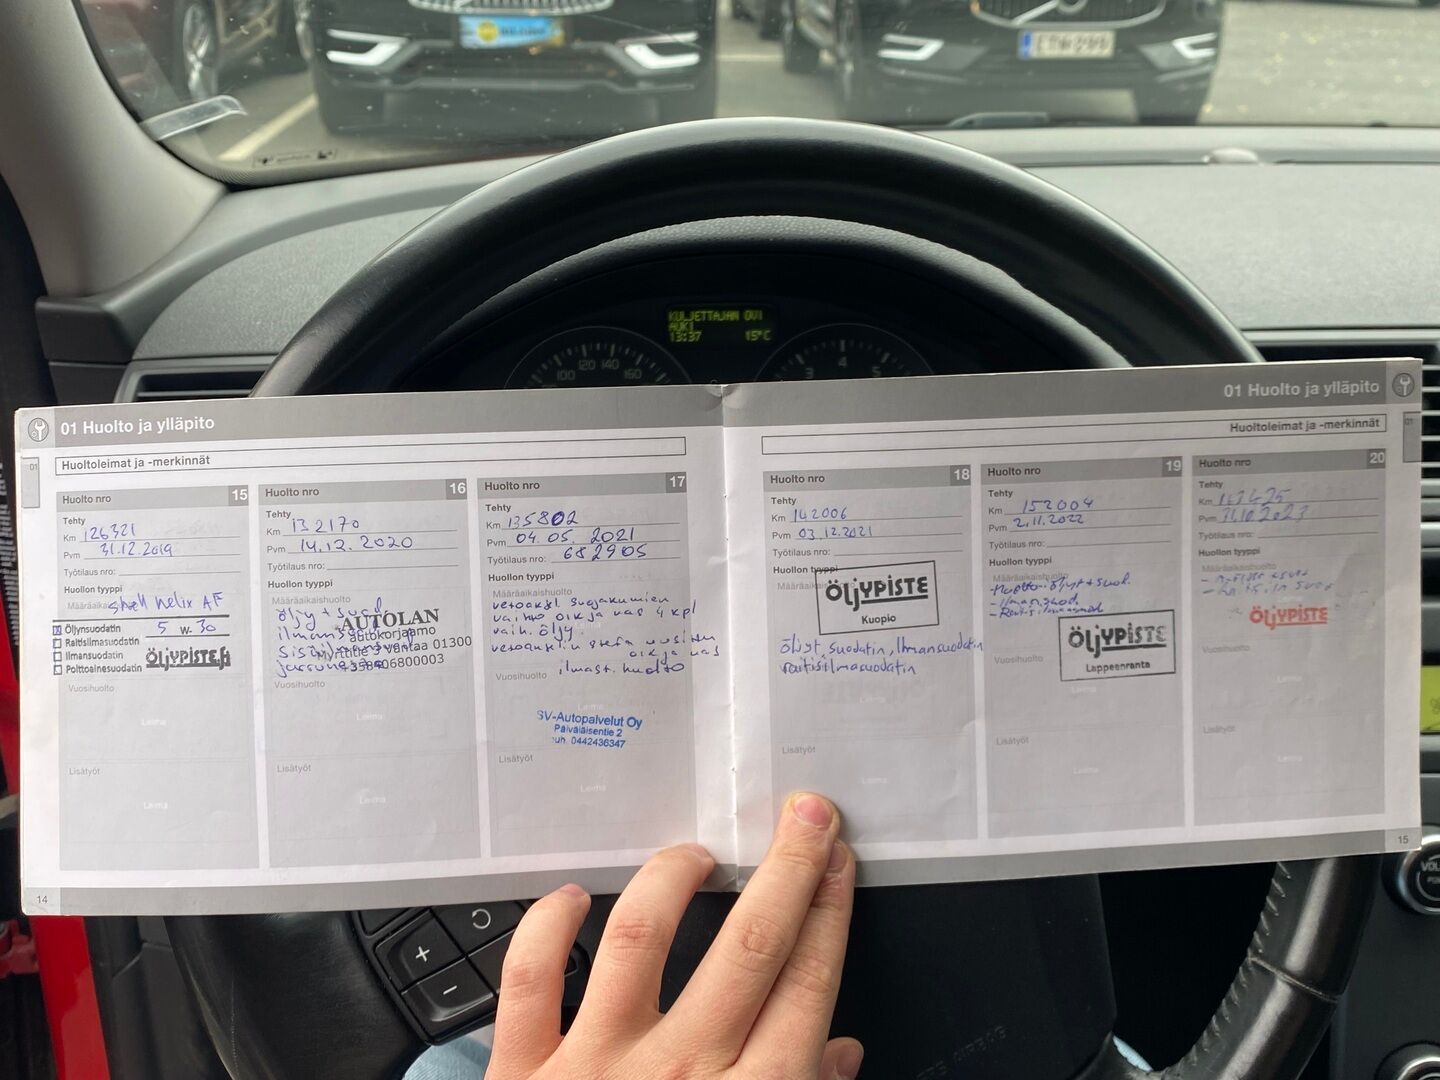 ETM-299
KULJETTAJAN OVI
AUKI
13:37 15°C
100 120 140 160
3 4 5
01 Huolto ja ylläpito
01
Huoltoleimat ja -merkinnät
Huolto nro 15
Tehty
Km 126321
Pvm 31.12.2019
Työtilaus nro:
Huollon tyyppi
Shell helix AF
5 w-30
Öljynsuodatin
Raitisilmasuodatin
Ilmansuodatin
Polttoainesuodatin
ÖLJYPISTE
Vuosihuolto
Leima
Lisätyöt
Leima
Huolto nro 16
Tehty
Km 132170
Pvm 14.12.2020
Työtilaus nro:
Huollon tyyppi
Määräaikaishuolto
öljy + suod
AUTOLAN
autokorjaamo
Myrttitie 3 Vantaa 01300
+358406800003
Vuosihuolto
Leima
Lisätyöt
Leima
Huolto nro 17
Tehty
Km 135802
Pvm 04.05.2021
Työtilaus nro: 682905
Huollon tyyppi
Määräaikaishuolto
vetoaksl. suojakumien
vaihto oik ja vas 4 kpl
vaih. öljy
oik ja vas
ilmast. huolto
Vuosihuolto
SV-Autopalvelut Oy
Päiväläisentie 2
puh. 0442436347
Lisätyöt
Leima
14
01 Huolto ja ylläpito
01
Huoltoleimat ja -merkinnät
Huolto nro 18
Tehty
Km 142006
Pvm 03.12.2021
Työtilaus nro:
Huollon tyyppi
ÖLJYPISTE
Kuopio
öljyt, suodatin, Ilmansuodatin
raitisilmasuodatin
Lisätyöt
Leima
Huolto nro 19
Tehty
Km 152004
Pvm 2.11.2022
Työtilaus nro:
Huollon tyyppi
Määräaikaishuolto
Huolto: öljyt + suod.
- Ilman.suod.
ÖLJYPISTE
Lappeenranta
Vuosihuolto
Leima
Lisätyöt
Leima
Huolto nro 20
Tehty
Km
Pvm 31.10.2023
Työtilaus nro:
Huollon tyyppi
Määräaikaishuolto
ÖLJYPISTE
Vuosihuolto
Leima
Lisätyöt
Leima
15
VOL